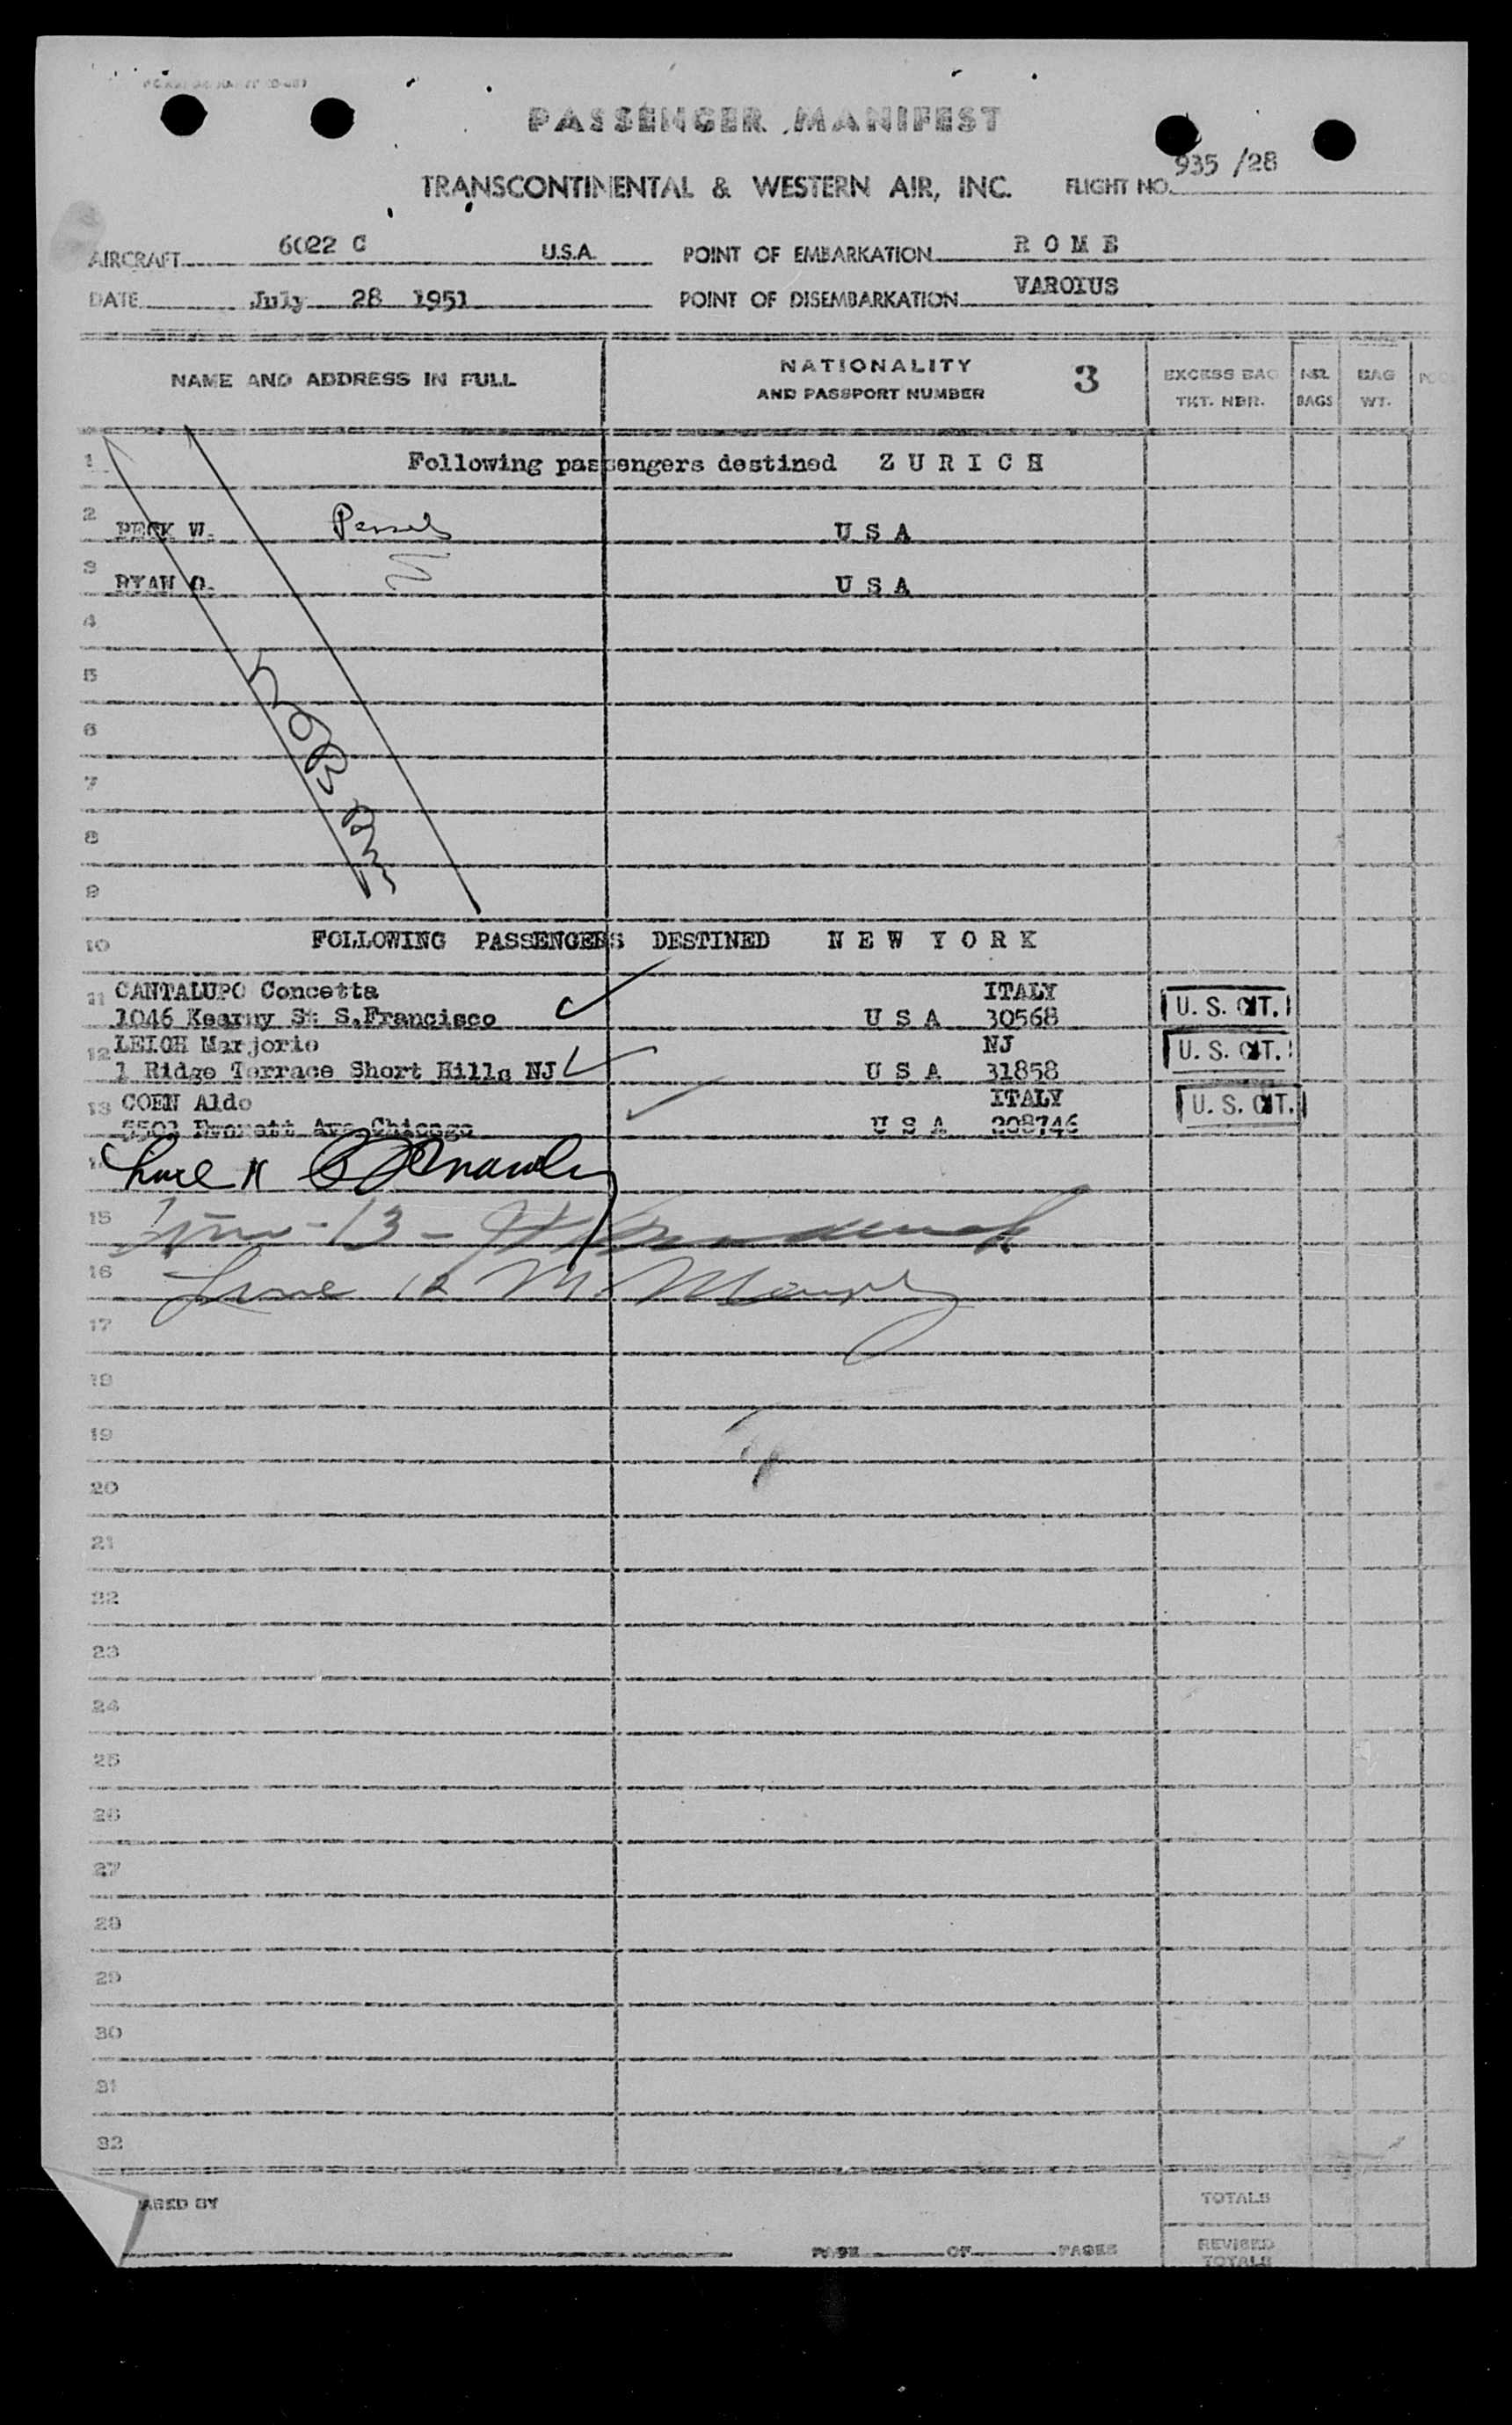 PASSENGER MANIFEST
TRANSCONTINENTAL & WESTERN AIR, INC. FLIGHT NO. 935 /28
AIRCRAFT 6022 C U.S.A. POINT OF EMBARKATION R O M E
DATE July 28 1951 POINT OF DISEMBARKATION VAROIUS
NAME AND ADDRESS IN FULL NATIONALITY AND PASSPORT NUMBER 3 EXCESS BAG TKT. NBR. NBR. BAGS BAG WT.
1 Following passengers destined Z U R I C H
2 PECK W. U S A
3 RYAN O. U S A
4
5
6
7
8
9
10 FOLLOWING PASSENGERS DESTINED N E W Y O R K
11 CANTALUPO Concetta ITALY
1046 Kearny St S.Francisco U S A 30568 U. S. CIT.
12 LEIGH Marjorie NJ
1 Ridge Terrace Short Hills NJ U S A 31858 U. S. CIT.
13 COEN Aldo ITALY
Ave Chicago U S A 208746 U. S. CIT.
Line 11
15 Line - 13 -
16 Line 12 M.
17
18
19
20
21
22
23
24
25
26
27
28
29
30
31
32
ARED BY TOTALS
PAGE OF PAGES REVISED TOTALS